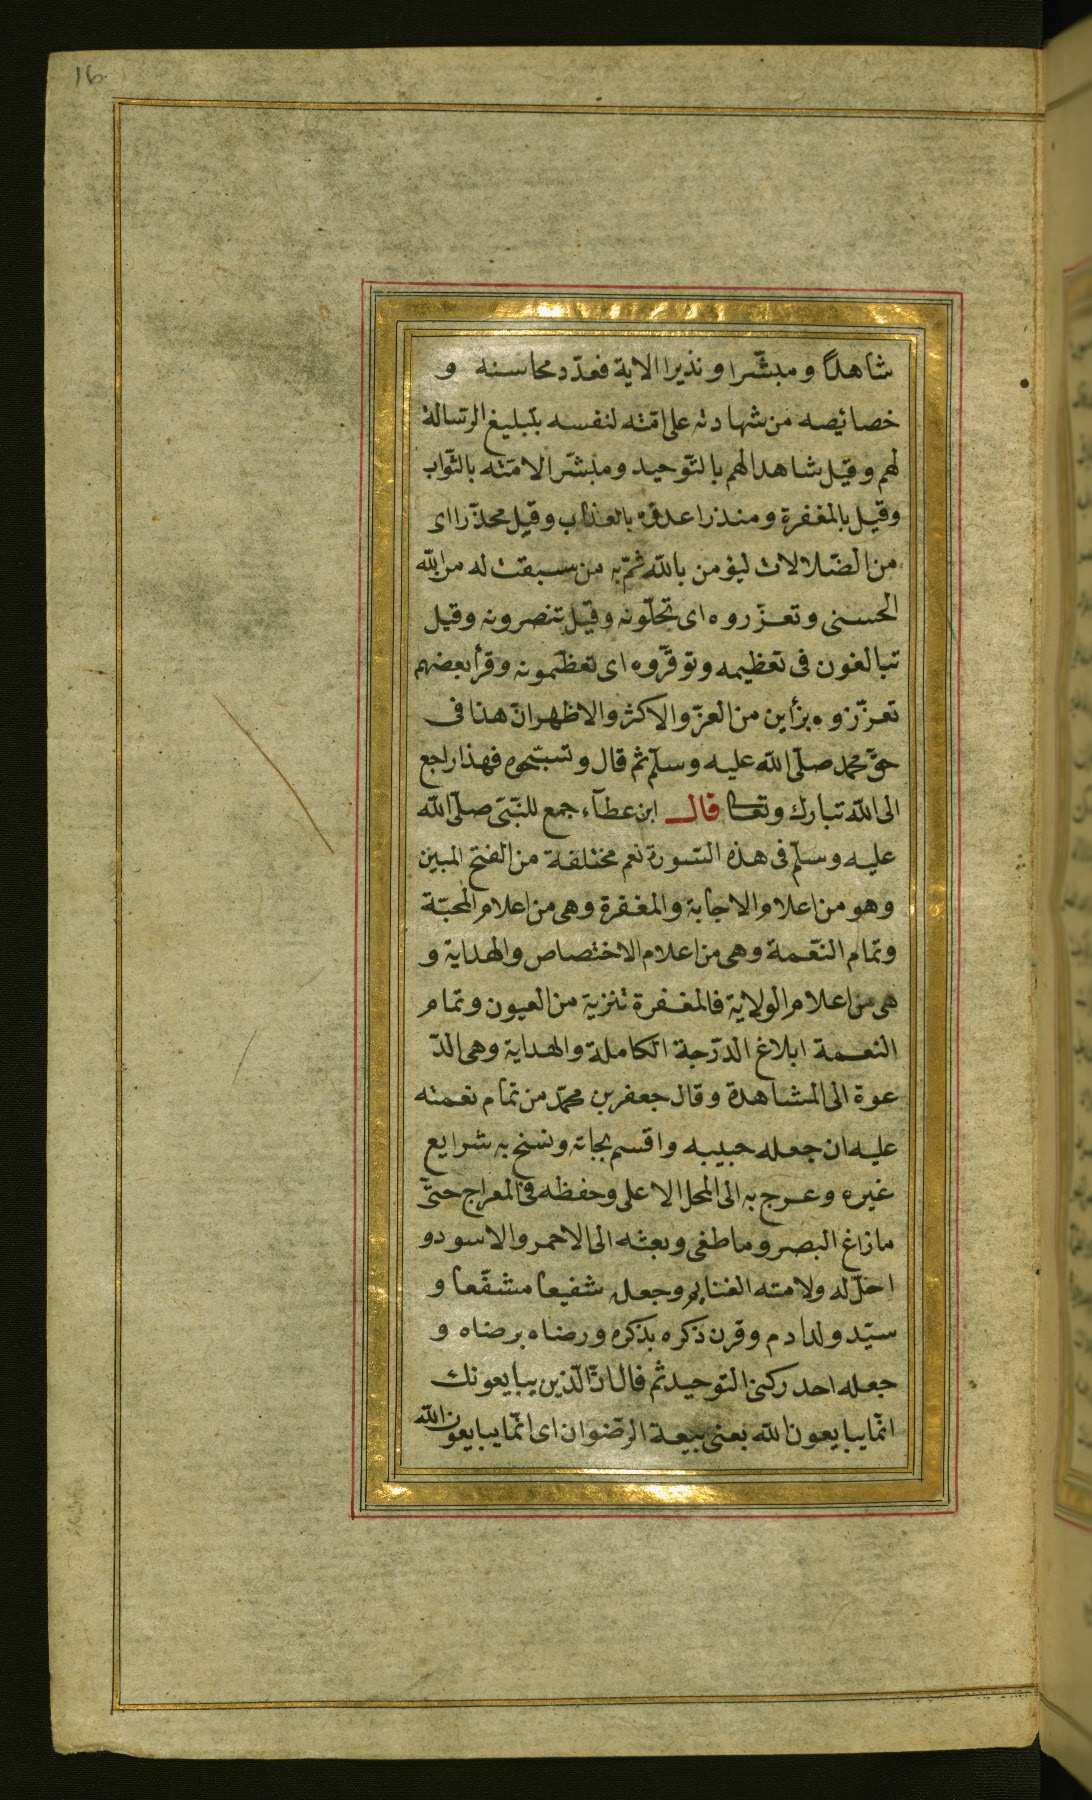 16
شاهداً و مبشّرا و نذيرا الاية فعدّد محاسنه و
خصائصه من شهادته على امّته لنفسه بتبليغ الرّسالة
لهم وقيل شاهدا لهم بالتّوحيد ومبشّرا لامّته بالثّواب
وقيل بالمغفرة ومنذرا عدوّه بالعذاب وقيل محذّرا اى
من الضّلالات ليؤمن بالله ثمّ به من سبقت له من الله
الحسنى وتعزّروه اى تجلّونه وقيل تنصرونه وقيل
تبالغون فى تعظيمه وتوقّروه اى تعظّمونه وقرأ بعضهم
تعزّزوه بزأين من العزّ والاكثر والاظهر انّ هذا فى
حقّ محمد صلّى الله عليه وسلّم ثم قال وتسبّحوه فهذا راجع
الى الله تبارك وتعالى قال ابن عطآء جمع للنّبّى صلّى الله
عليه وسلّم فى هذه السّورة نعم مختلفة من الفتح المبين
وهو من اعلام الاجابة والمغفرة وهى من اعلام المحبّة
وتمام النّعمة وهى من اعلام الاختصاص والهداية و
هى من اعلام الولاية فالمغفرة تنزية من العيون وتمام
النعمة ابلاغ الدّرجة الكاملة والهداية وهى الدّ
عوة الى المشاهدة وقال جعفر بن محمّد من تمام نعمته
عليه ان جعله حبيبه واقسم بحياته ونسخ به شرايع
غيره وعرج به الى المحل الاعلى وحفظه فى المعراج حتىّ
مازاغ البصر وماطغى وبعثه الى الاحمر والاسود و
احلّ له ولامته الغنايم وجعله شفيعا مشفّعا و
سيّد ولد ادم وقرن ذكره بذكره ورضاه برضاه و
جعله احد ركنى التوحيد ثم قال انّ الّذين يبايعونك
انّما يبايعون الله يعنى بيعة الرّضوان اى انّما يبايعون الله